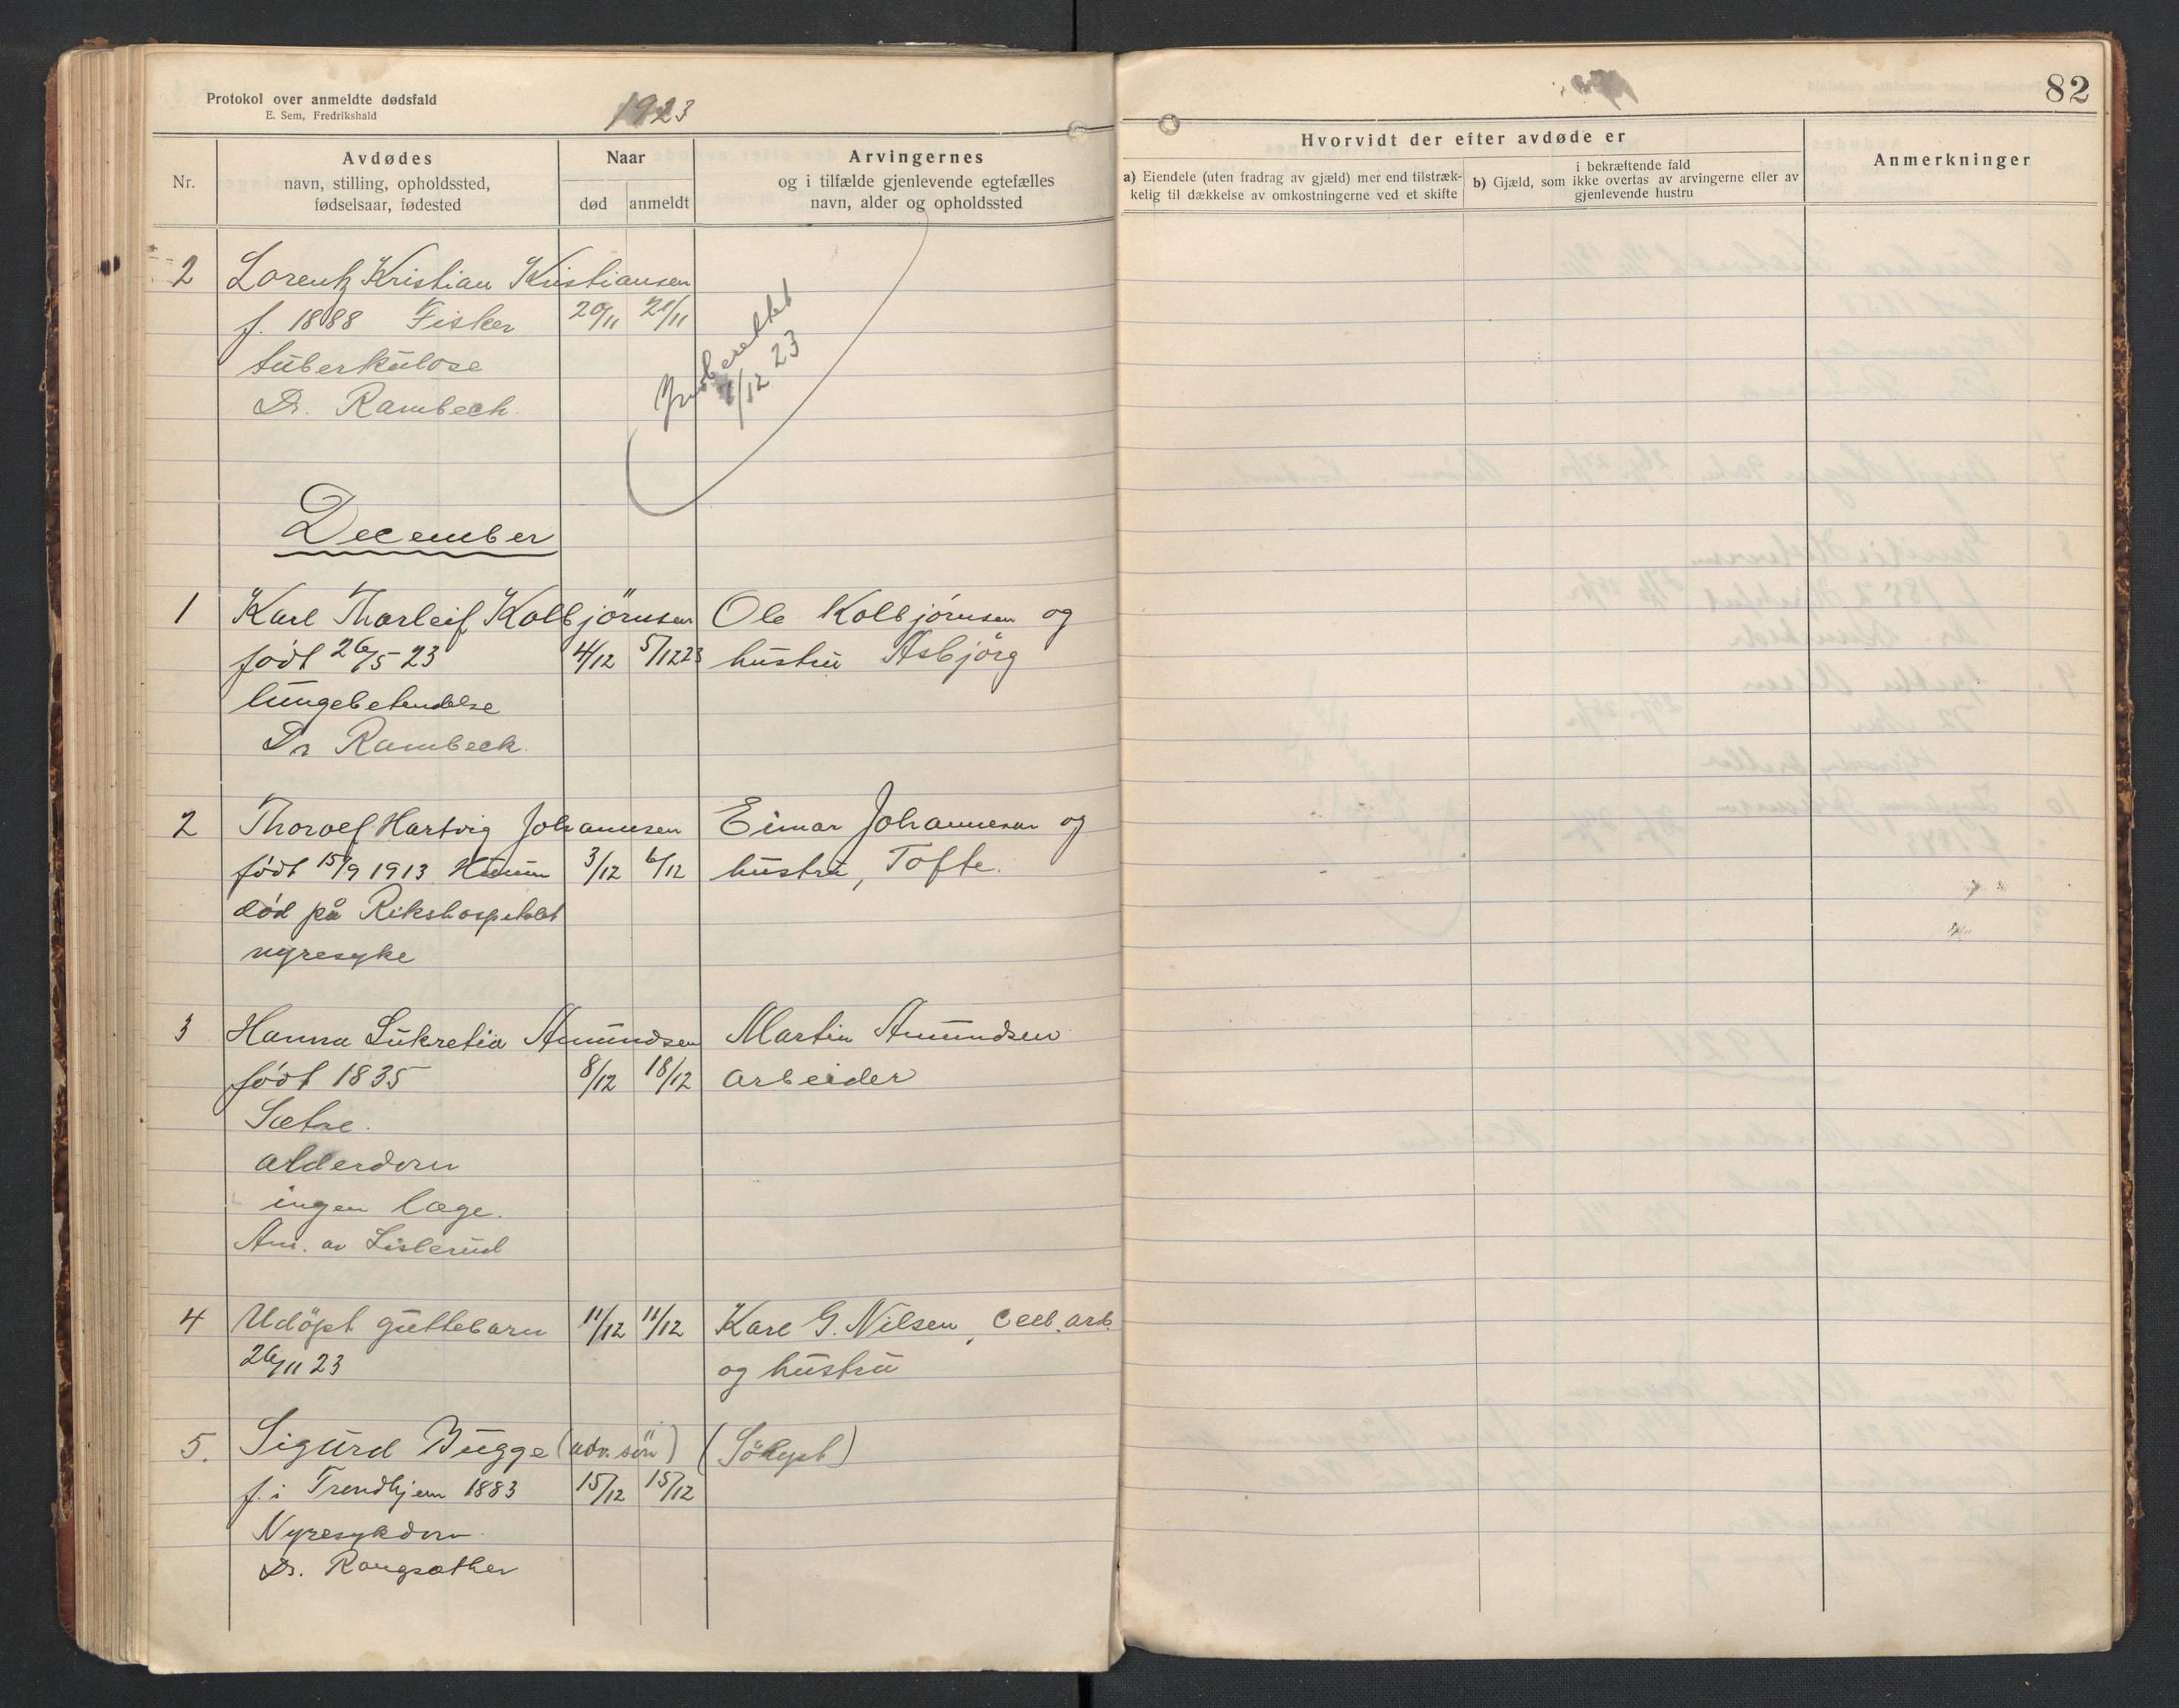 Protokol over anmeldte dødsfald
E. Sem, Fredrikshald
1923
Nr.
Avdødes
navn, stilling, opholdssted,
fødselsaar, fødested
Naar
død
anmeldt
Arvingernes
og i tilfælde gjenlevende egtefælles
navn, alder og opholdssted
2 Lorentz Kristian Kristiansen
f. 1888 Fisker 20/11 21/11
tuberkulose
Dr. Rambech.
Innberettet
7/12 23
December
1 Karl Thorleif Kolbjörnsen Ole Kolbjörnsen og
født 26/5 23 4/12 5/12 23 hustru Asbjörg
lungebetendelse
Dr Rambeck.
2 Thorolf Hartvig Johannsen Einar Johannesen og
født 15/9 1913 Hurum 3/12 6/12 hustru, Tofte.
död på Rikshospitalet
nyresyke
3 Hanna Lukretia Amundsen Martin Amundsen
født 1835 8/12 18/12 arbeider
Sætre.
alderdom
ingen læge.
Am. av Lislerud
4 Udöpt guttebarn 11/12 11/12 Karl G. Nilsen, cell. arb.
26/11 23 og hustru
5. Sigurd Bugge (adv. sön)
f. i Trondhjem 1883 15/12 15/12
Nyresykdom.
Dr. Rongsæther
82
Hvorvidt der efter avdøde er
a) Eiendele (uten fradrag av gjæld) mer end tilstræk-
kelig til dækkelse av omkostningerne ved et skifte
i bekræftende fald
b) Gjæld, som ikke overtas av arvingerne eller av
gjenlevende hustru
Anmerkninger